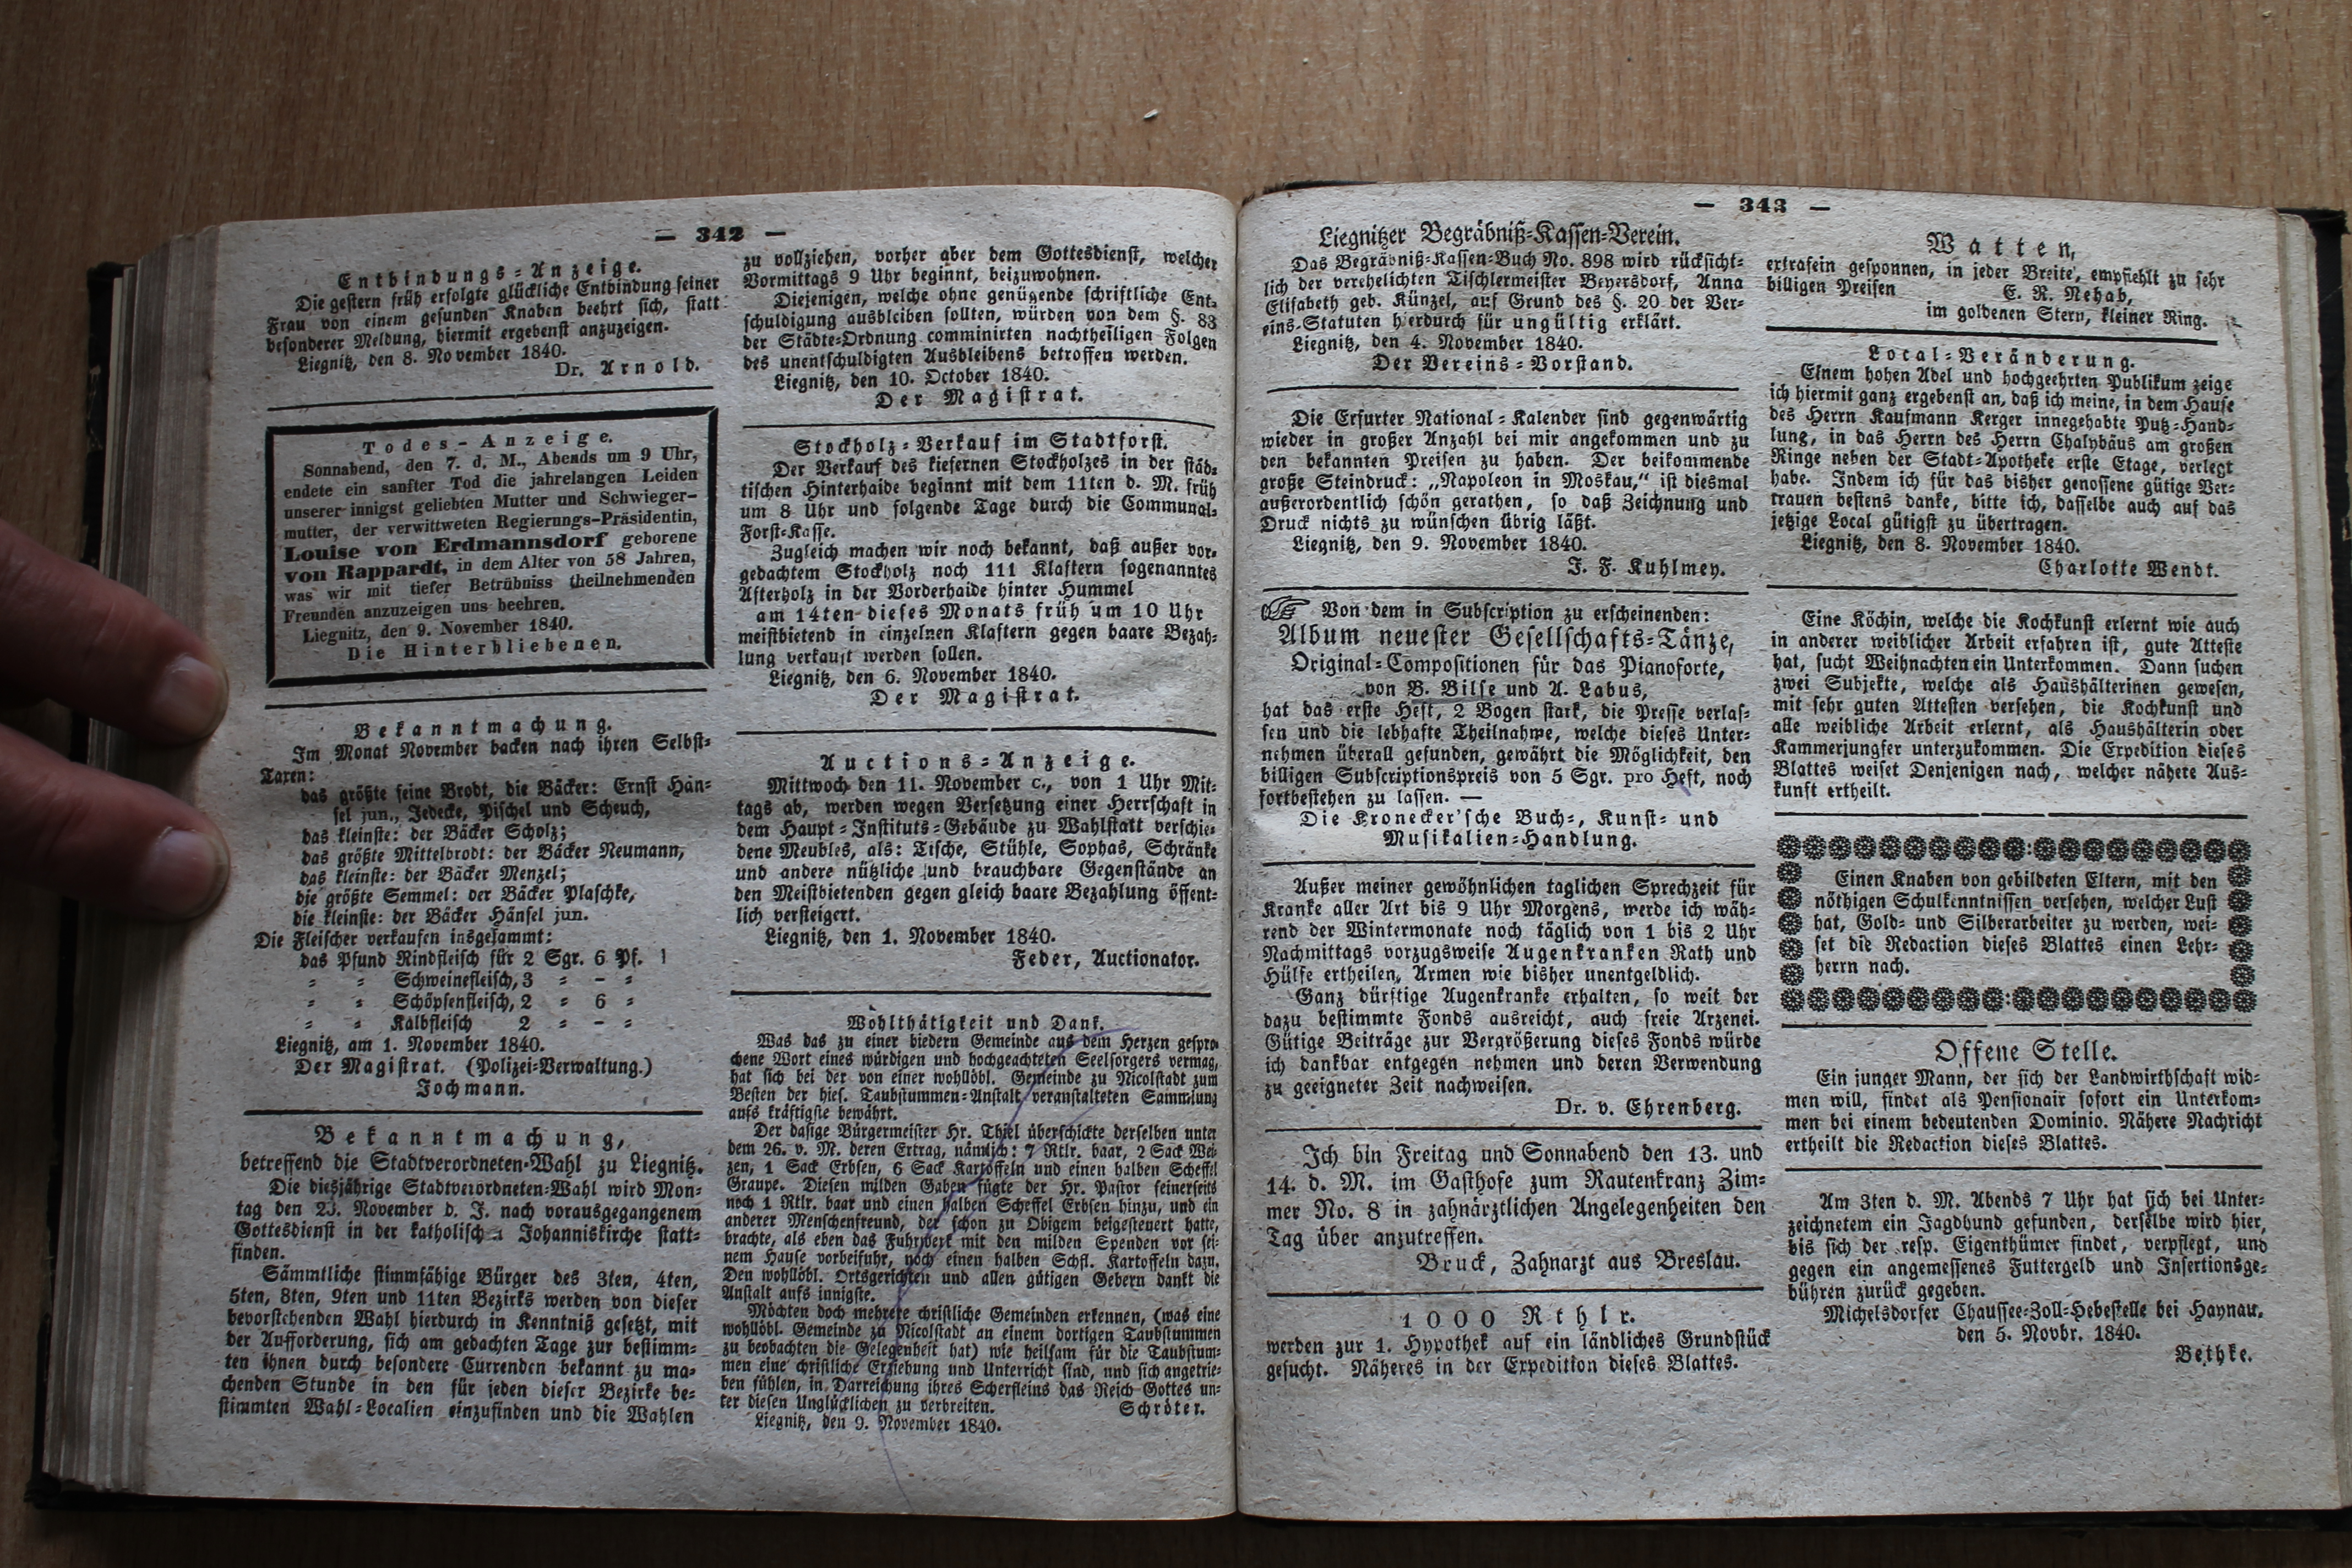 — 342 —
Entbindungs-Anzeige.
Die gestern früh erfolgte glückliche Entbindung seiner
Frau von einem gesunden Knaben beehrt sich, statt
besonderer Meldung, hiermit ergebenst anzuzeigen.
Liegnitz, den 8. November 1840.
Dr. Arnold.
Todes-Anzeige.
Sonnabend, den 7. d. M., Abends um 9 Uhr,
endete ein sanfter Tod die jahrelangen Leiden
unserer innigst geliebten Mutter und Schwieger-
mutter, der verwittweten Regierungs-Präsidentin,
Louise von Erdmannsdorf geborene
von Rappardt, in dem Alter von 58 Jahren,
was wir mit tiefer Betrübniss theilnehmenden
Freunden anzuzeigen uns beehren.
Liegnitz, den 9. November 1840.
Die Hinterbliebenen.
Bekanntmachung.
Im Monat November backen nach ihren Selbst-
Taxen:
das größte feine Brodt, die Bäcker: Ernst Hän-
sel jun., Jedecke, Pischel und Scheuch,
das kleinste: der Bäcker Scholz;
das größte Mittelbrodt: der Bäcker Neumann,
das kleinste: der Bäcker Menzel;
die größte Semmel: der Bäcker Plaschke,
die kleinste: der Bäcker Hänsel jun.
Die Fleischer verkaufen insgesammt:
das Pfund Rindfleisch für 2 Sgr. 6 Pf.
= = Schweinefleisch, 3 = – =
= = Schöpsenfleisch, 2 = 6 =
= = Kalbfleisch 2 = – =
Liegnitz, am 1. November 1840.
Der Magistrat. (Polizei-Verwaltung.)
Jochmann.
Bekanntmachung,
betreffend die Stadtverordneten-Wahl zu Liegnitz.
Die diesjährige Stadtverordneten-Wahl wird Mon-
tag den 23. November d. J. nach vorausgegangenem
Gottesdienst in der katholischen Johanniskirche statt-
finden.
Sämmtliche stimmfähige Bürger des 3ten, 4ten,
5ten, 8ten, 9ten und 11ten Bezirks werden von dieser
bevorstehenden Wahl hierdurch in Kenntniß gesetzt, mit
der Aufforderung, sich am gedachten Tage zur bestimm-
ten ihnen durch besondere Currenden bekannt zu ma-
chenden Stunde in den für jeden dieser Bezirke be-
stimmten Wahl-Localien einzufinden und die Wahlen
zu vollziehen, vorher aber dem Gottesdienst, welcher
Vormittags 9 Uhr beginnt, beizuwohnen.
Diejenigen, welche ohne genügende schriftliche Ent-
schuldigung ausbleiben sollten, würden von dem §. 83
der Städte-Ordnung comminirten nachtheiligen Folgen
des unentschuldigten Ausbleibens betroffen werden.
Liegnitz, den 10. October 1840.
Der Magistrat.
Stockholz-Verkauf im Stadtforst.
Der Verkauf des kiefernen Stockholzes in der städ-
tischen Hinterhaide beginnt mit dem 11ten d. M. früh
um 8 Uhr und folgende Tage durch die Communal-
Forst-Kasse.
Zugleich machen wir noch bekannt, daß außer vor-
gedachtem Stockholz noch 111 Klaftern sogenanntes
Afterholz in der Vorderhaide hinter Hummel
am 14ten dieses Monats früh um 10 Uhr
meistbietend in einzelnen Klaftern gegen baare Bezah-
lung verkauft werden sollen.
Liegnitz, den 6. November 1840.
Der Magistrat.
Auctions-Anzeige.
Mittwoch den 11. November c., von 1 Uhr Mit-
tags ab, werden wegen Versetzung einer Herrschaft in
dem Haupt-Instituts-Gebäude zu Wahlstatt verschie-
dene Meubles, als: Tische, Stühle, Sophas, Schränke
und andere nützliche und brauchbare Gegenstände an
den Meistbietenden gegen gleich baare Bezahlung öffent-
lich versteigert.
Liegnitz, den 1. November 1840.
Feder, Auctionator.
Wohlthätigkeit und Dank.
Was das zu einer biedern Gemeinde aus dem Herzen gespro-
chene Wort eines würdigen und hochgeachteten Seelsorgers vermag,
hat sich bei der von einer wohllöbl. Gemeinde zu Nicolstadt zum
Besten der hies. Taubstummen-Anstalt veranstalteten Sammlung
aufs kräftigste bewährt.
Der dasige Bürgermeister Hr. Thiel überschickte derselben unter
dem 26. v. M. deren Ertrag, nämlich: 7 Rtlr. baar, 2 Sack Wei-
zen, 1 Sack Erbsen, 6 Sack Kartoffeln und einen halben Scheffel
Graupe. Diesen milden Gaben fügte der Hr. Pastor seinerseits
noch 1 Rtlr. baar und einen halben Scheffel Erbsen hinzu, und ein
anderer Menschenfreund, der schon zu Obigem beigesteuert hatte,
brachte, als eben das Fuhrwerk mit den milden Spenden vor sei-
nem Hause vorbeifuhr, noch einen halben Schfl. Kartoffeln dazu.
Den wohllöbl. Ortsgerichten und allen gütigen Gebern dankt die
Anstalt aufs innigste.
Möchten doch mehrere christliche Gemeinden erkennen, (was eine
wohllöbl. Gemeinde zu Nicolstadt an einem dortigen Taubstummen
zu beobachten die Gelegenheit hat) wie heilsam für die Taubstum-
men eine christliche Erziehung und Unterricht sind, und sich angetrie-
ben fühlen, in Darreichung ihres Scherfleins das Reich Gottes un-
ter diesen Unglücklichen zu verbreiten. Schröter.
Liegnitz, den 9. November 1840.
— 343 —
Liegnitzer Begräbniß-Kassen-Verein.
Das Begräbniß-Kassen-Buch No. 898 wird rücksicht-
lich der verehelichten Tischlermeister Beyersdorf, Anna
Elisabeth geb. Künzel, auf Grund des §. 20 der Ver-
eins-Statuten hierdurch für ungültig erklärt.
Liegnitz, den 4. November 1840.
Der Vereins-Vorstand.
Die Erfurter National-Kalender sind gegenwärtig
wieder in großer Anzahl bei mir angekommen und zu
den bekannten Preisen zu haben. Der beikommende
große Steindruck: „Napoleon in Moskau,“ ist diesmal
außerordentlich schön gerathen, so daß Zeichnung und
Druck nichts zu wünschen übrig läßt.
Liegnitz, den 9. November 1840.
J. F. Kuhlmey.
Von dem in Subscription zu erscheinenden:
Album neuester Gesellschafts-Tänze,
Original-Compositionen für das Pianoforte,
von B. Bilse und A. Labus,
hat das erste Heft, 2 Bogen stark, die Presse verlas-
sen und die lebhafte Theilnahme, welche dieses Unter-
nehmen überall gefunden, gewährt die Möglichkeit, den
billigen Subscriptionspreis von 5 Sgr. pro Heft, noch
fortbestehen zu lassen. —
Die Kronecker'sche Buch-, Kunst- und
Musikalien-Handlung.
Außer meiner gewöhnlichen täglichen Sprechzeit für
Kranke aller Art bis 9 Uhr Morgens, werde ich wäh-
rend der Wintermonate noch täglich von 1 bis 2 Uhr
Nachmittags vorzugsweise Augenkranken Rath und
Hülfe ertheilen, Armen wie bisher unentgeldlich.
Ganz dürftige Augenkranke erhalten, so weit der
dazu bestimmte Fonds ausreicht, auch freie Arzenei.
Gütige Beiträge zur Vergrößerung dieses Fonds würde
ich dankbar entgegen nehmen und deren Verwendung
zu geeigneter Zeit nachweisen.
Dr. v. Ehrenberg.
Ich bin Freitag und Sonnabend den 13. und
14. d. M. im Gasthofe zum Rautenkranz Zim-
mer No. 8 in zahnärztlichen Angelegenheiten den
Tag über anzutreffen.
Bruck, Zahnarzt aus Breslau.
1000 Rthlr.
werden zur 1. Hypothek auf ein ländliches Grundstück
gesucht. Näheres in der Expedition dieses Blattes.
Watten,
extrafein gesponnen, in jeder Breite, empfiehlt zu sehr
billigen Preisen
E. R. Nehab,
im goldenen Stern, kleiner Ring.
Local-Veränderung.
Einem hohen Adel und hochgeehrten Publikum zeige
ich hiermit ganz ergebenst an, daß ich meine, in dem Hause
des Herrn Kaufmann Kerger innegehabte Putz-Hand-
lung, in das Herrn des Herrn Chalybäus am großen
Ringe neben der Stadt-Apotheke erste Etage, verlegt
habe. Indem ich für das bisher genossene gütige Ver-
trauen bestens danke, bitte ich, dasselbe auch auf das
jetzige Local gütigst zu übertragen.
Liegnitz, den 8. November 1840.
Charlotte Wendt.
Eine Köchin, welche die Kochkunst erlernt wie auch
in anderer weiblicher Arbeit erfahren ist, gute Atteste
hat, sucht Weihnachten ein Unterkommen. Dann suchen
zwei Subjekte, welche als Haushälterinen gewesen,
mit sehr guten Attesten versehen, die Kochkunst und
alle weibliche Arbeit erlernt, als Haushälterin oder
Kammerjungfer unterzukommen. Die Expedition dieses
Blattes weiset Denjenigen nach, welcher nähere Aus-
kunft ertheilt.
Einen Knaben von gebildeten Eltern, mit den
nöthigen Schulkenntnissen versehen, welcher Lust
hat, Gold- und Silberarbeiter zu werden, wei-
set die Redaction dieses Blattes einen Lehr-
herrn nach.
Offene Stelle.
Ein junger Mann, der sich der Landwirthschaft wid-
men will, findet als Pensionair sofort ein Unterkom-
men bei einem bedeutenden Dominio. Nähere Nachricht
ertheilt die Redaction dieses Blattes.
Am 3ten d. M. Abends 7 Uhr hat sich bei Unter-
zeichnetem ein Jagdhund gefunden, derselbe wird hier,
bis sich der resp. Eigenthümer findet, verpflegt, und
gegen ein angemessenes Futtergeld und Insertionsge-
bühren zurück gegeben.
Michelsdorfer Chaussee-Zoll-Hebestelle bei Haynau,
den 5. Novbr. 1840.
Bethke.